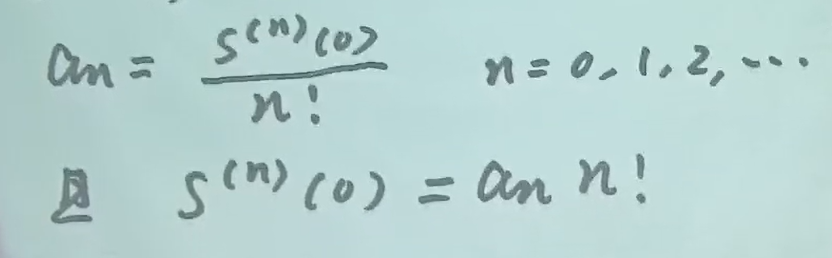 an = S^(n)(0) / n!    n = 0, 1, 2, ...
且 S^(n)(0) = an n!